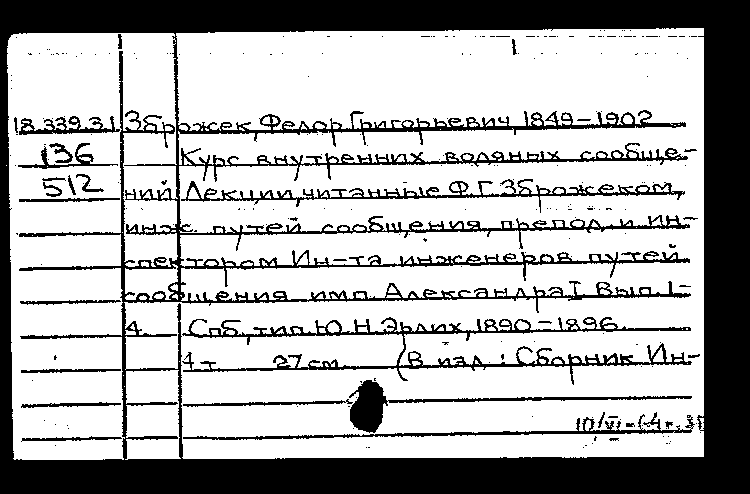 18.339.3.1. Зброжек, Федор Григорьевич, 1849–1902
136 Курс внутренних водяных сообще-
512 ний. Лекции, читанные Ф.Г. Зброжеком,
инж. путей сообщения, препод. и ин-
спектором Ин-та инженеров путей
сообщения имп. Александра I. Вып. 1-
4. Спб., тип. Ю.Н. Эрлих, 1890–1896.
4 т. 27 см. (В изд.: Сборник Ин-